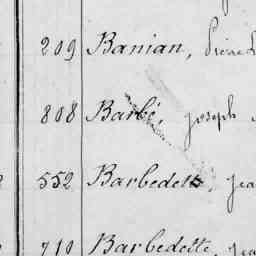 209 Banian, Pierre
808 Barbé, joseph
552 Barbedette, jea
710 Barbedette, jea